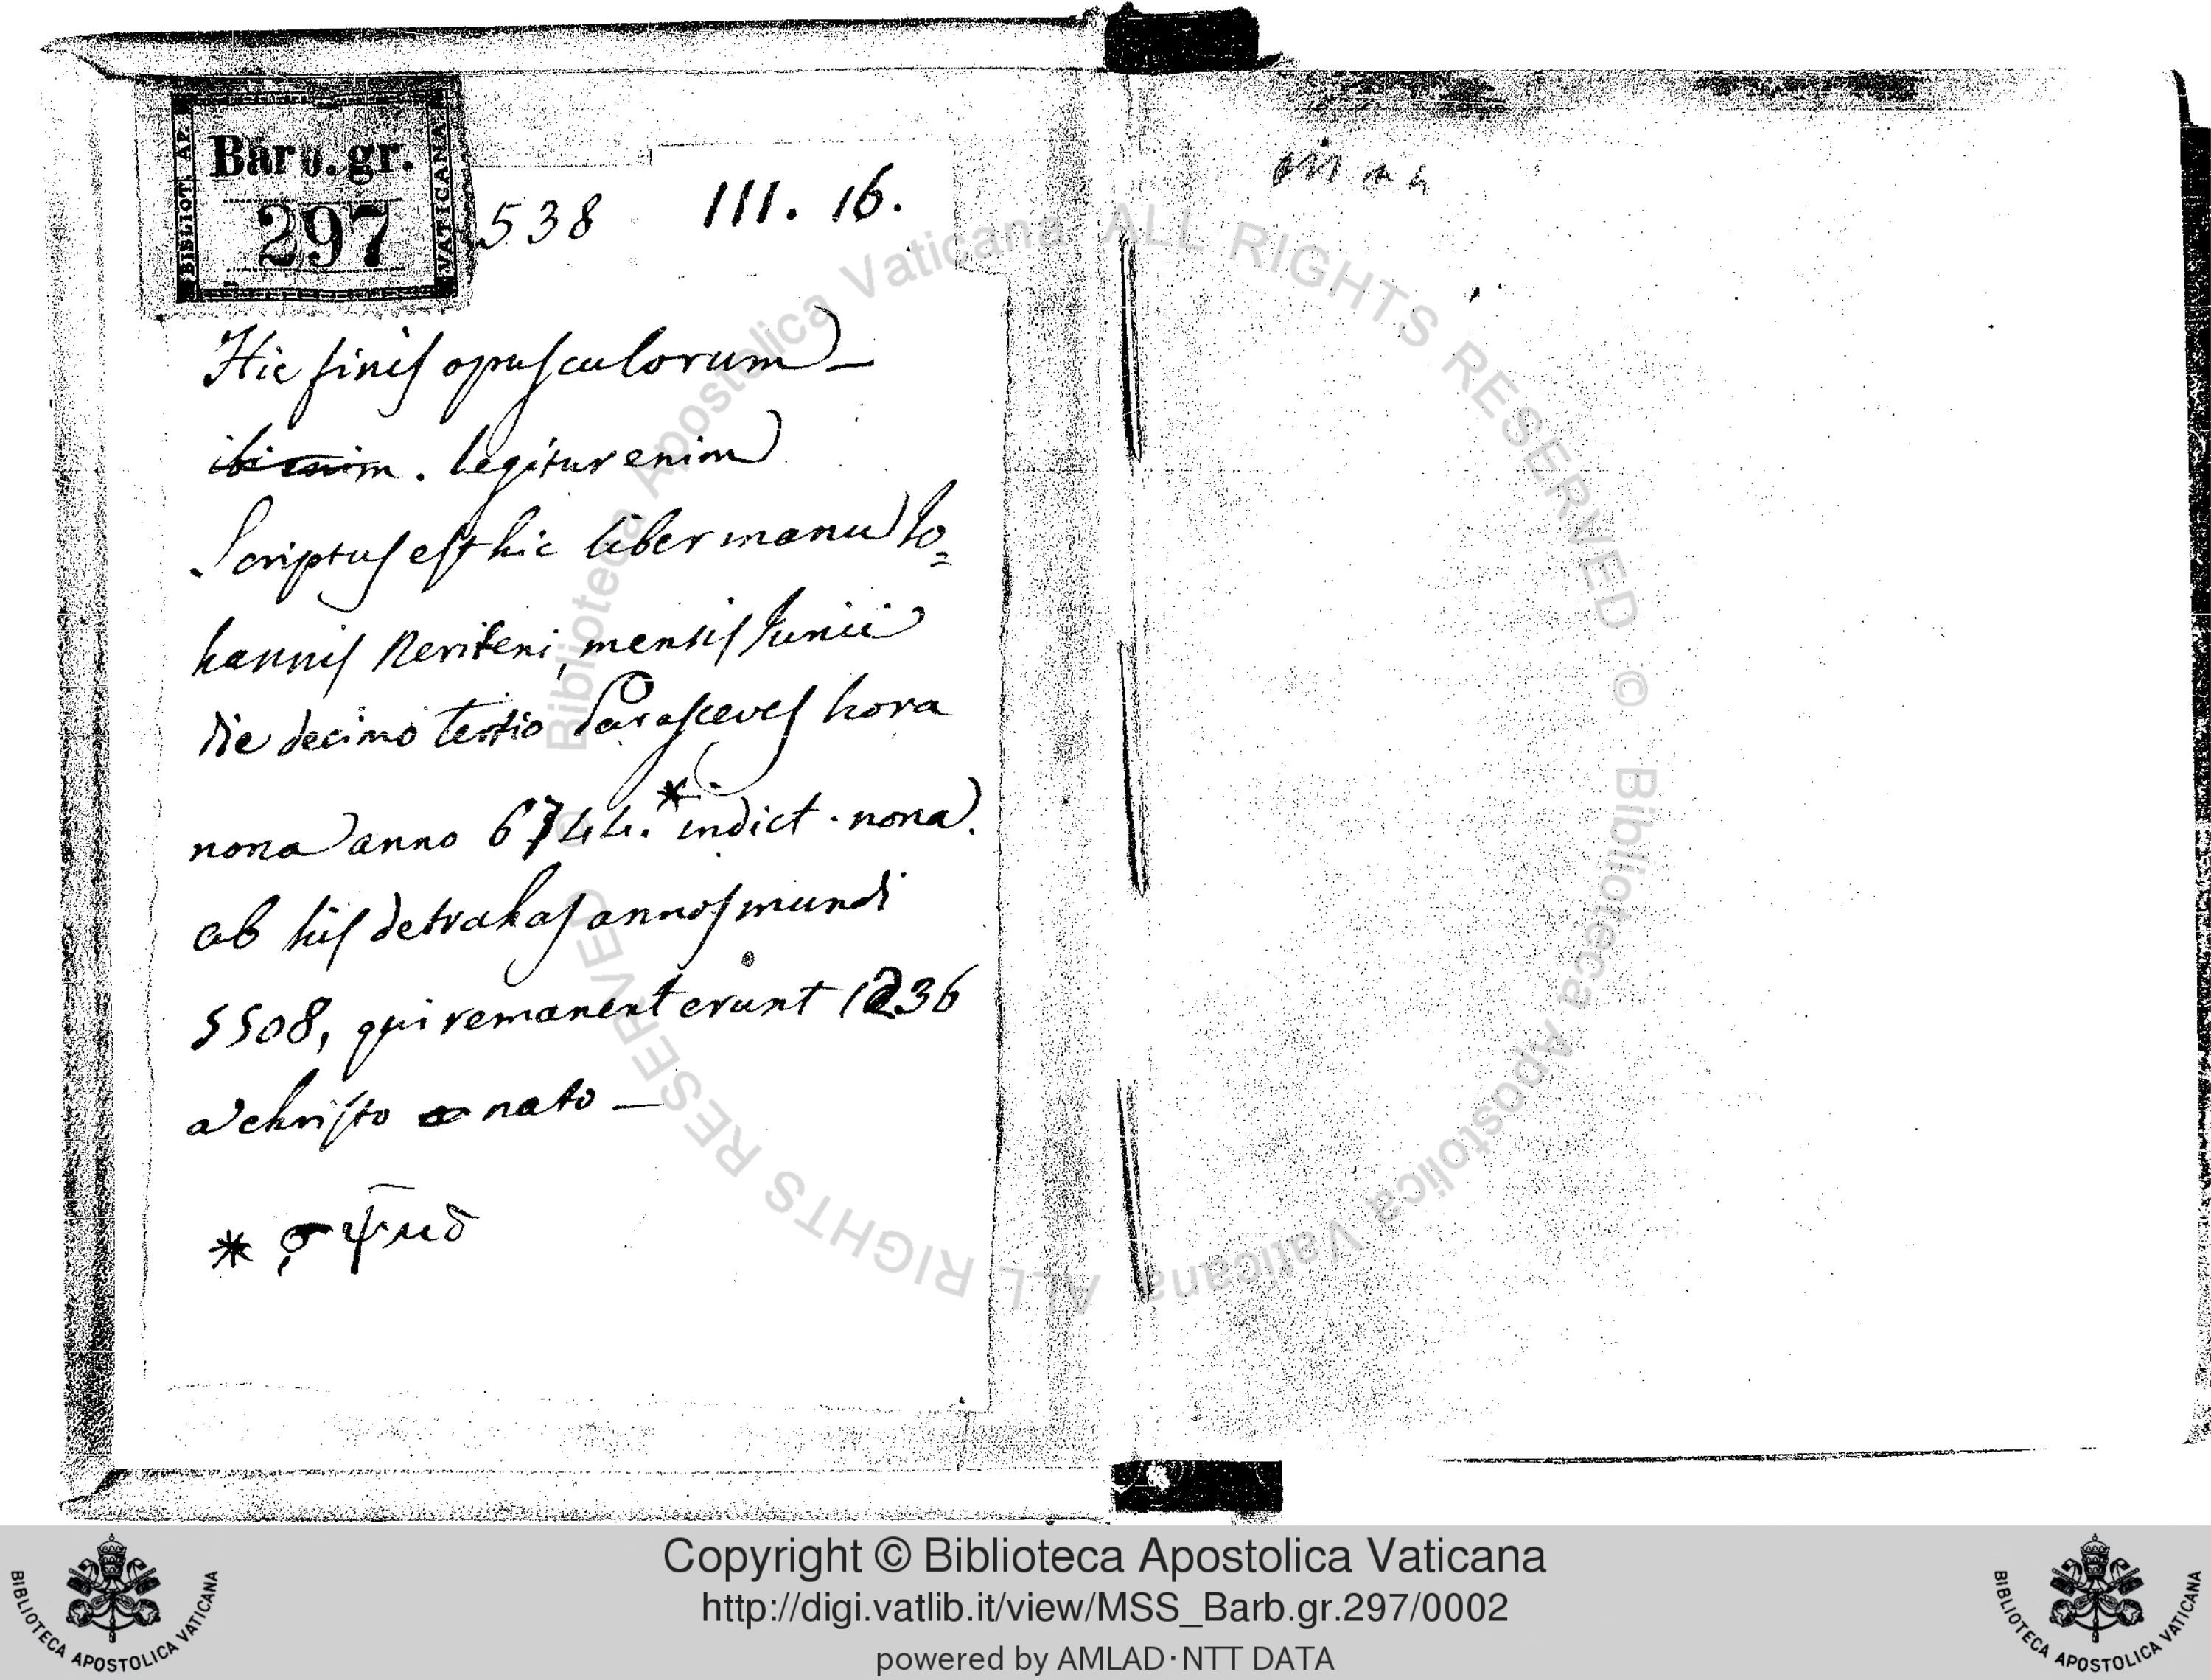 BIBLIOT. AP. VATICANA
Barb. gr.
297
538
III. 16.
Hic finis opusculorum
ibi enim. legitur enim
Scriptus est hic liber manu Io=
hannis Reriteni, mensis Iunii
die decimo tertio Parasceves hora
nona anno 6744.* indict. nona.
ab his detrahas annos mundi
5508, qui remanent erunt 1236
a christo nato —
* ϛψμδ
© Biblioteca Apostolica Vaticana ALL RIGHTS RESERVED © Biblioteca Apostolica Vaticana ALL RIGHTS RESERVED
Copyright © Biblioteca Apostolica Vaticana
http://digi.vatlib.it/view/MSS_Barb.gr.297/0002
powered by AMLAD·NTT DATA
BIBLIOTECA APOSTOLICA VATICANA
BIBLIOTECA APOSTOLICA VATICANA